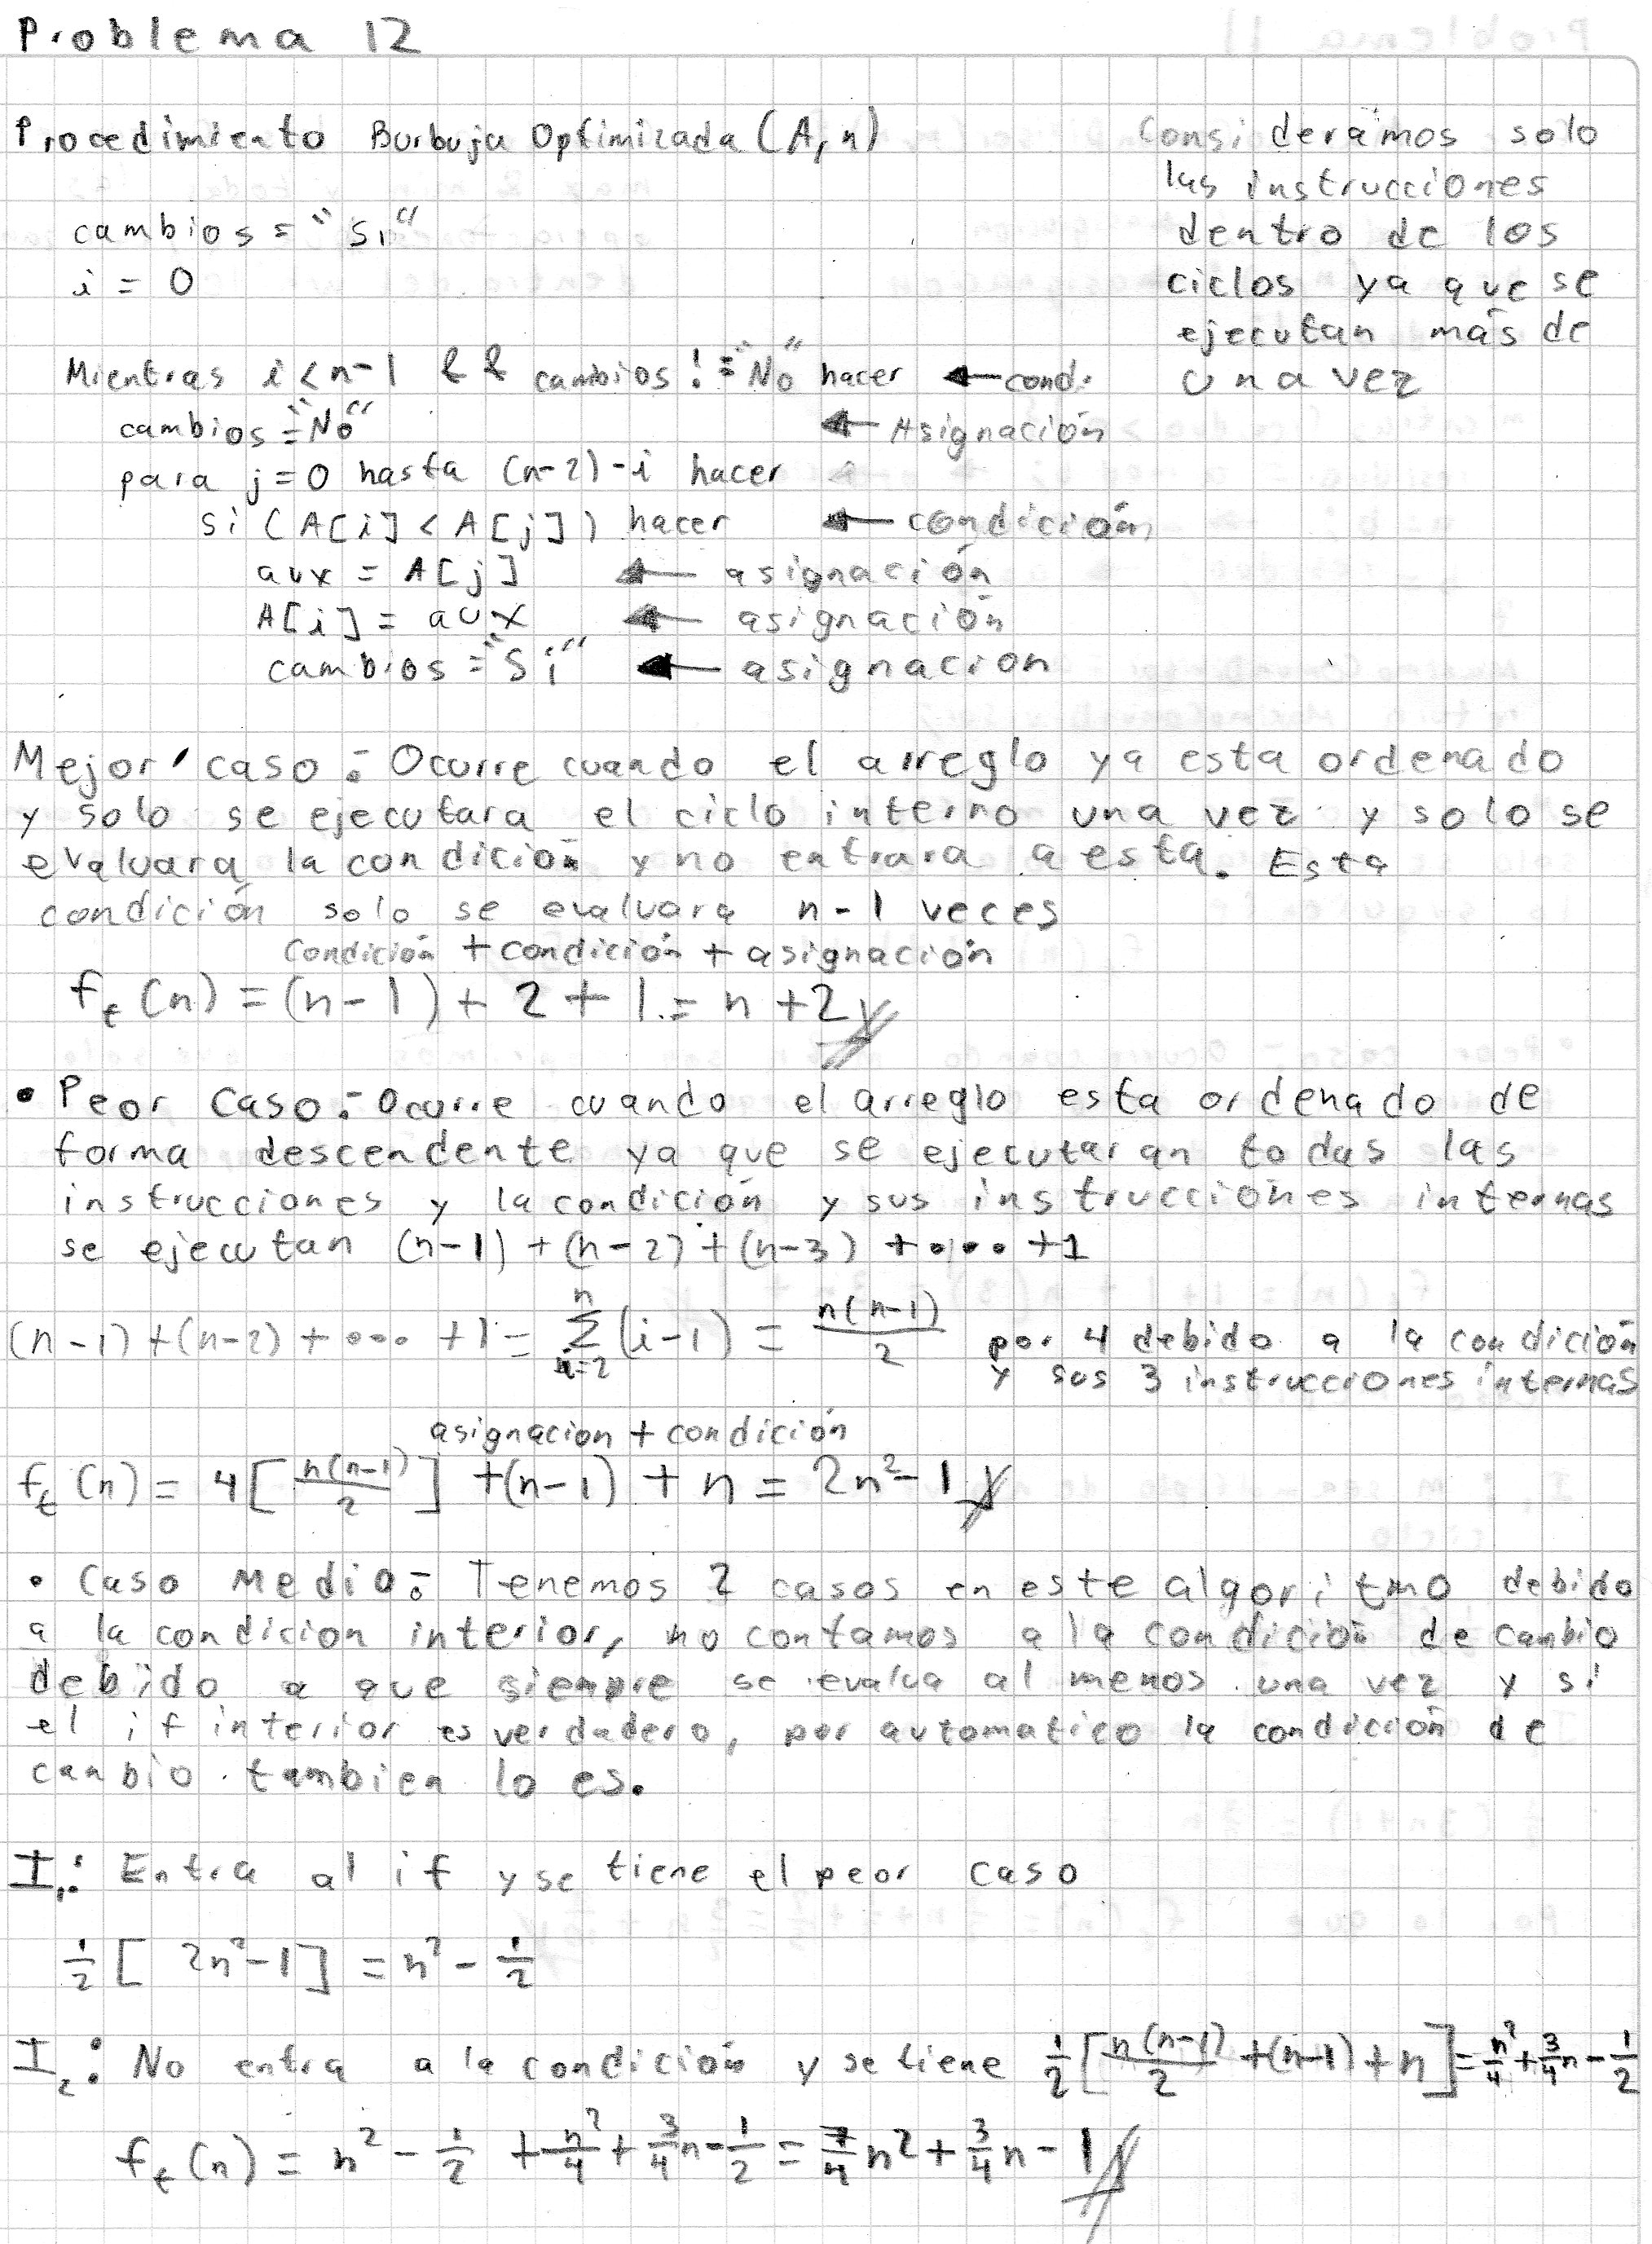 Problema 12
Procedimiento Burbuja Optimizada (A, n)
cambios = "Si"
i = 0
Mientras i < n-1 && cambios != "No" hacer ← cond.
cambios = "No" ← Asignación
para j=0 hasta (n-2)-i hacer
si (A[i] < A[j]) hacer ← condición
aux = A[j] ← asignación
A[i] = aux ← asignación
cambios = "Si" ← asignacion
Consideramos solo
las instrucciones
dentro de los
ciclos ya que se
ejecutan más de
una vez
Mejor caso: Ocurre cuando el arreglo ya esta ordenado
y solo se ejecutara el ciclo interno una vez y solo se
evaluara la condición y no entrara a esta. Esta
condición solo se evaluara n-1 veces
Condición + condición + asignación
f_t (n) = (n-1) + 2 + 1 = n + 2
• Peor Caso: Ocurre cuando el arreglo esta ordenado de
forma descendente ya que se ejecutaran todas las
instrucciones y la condición y sus instrucciones internas
se ejecutan (n-1) + (n-2) + (n-3) + .... + 1
(n-1) + (n-2) + .... + 1 = ∑_{i=2}^{n} (i-1) = n(n-1)/2 por 4 debido a la condición
y sus 3 instrucciones internas
asignacion + condición
f_t (n) = 4 [ n(n-1)/2 ] + (n-1) + n = 2n² - 1
• Caso Medio: Tenemos 2 casos en este algoritmo debido
a la condicion interior, no contamos a la condición de cambio
debido a que siempre se evalua al menos una vez y si
el if interior es verdadero, por automatico la condición de
cambio tambien lo es.
I₁: Entra al if y se tiene el peor caso
1/2 [ 2n² - 1 ] = n² - 1/2
I₂: No entra a la condición y se tiene 1/2 [ n(n-1)/2 + (n-1) + n ] = n²/4 + 3/4 n - 1/2
f_t (n) = n² - 1/2 + n²/4 + 3/4 n - 1/2 = 7/4 n² + 3/4 n - 1